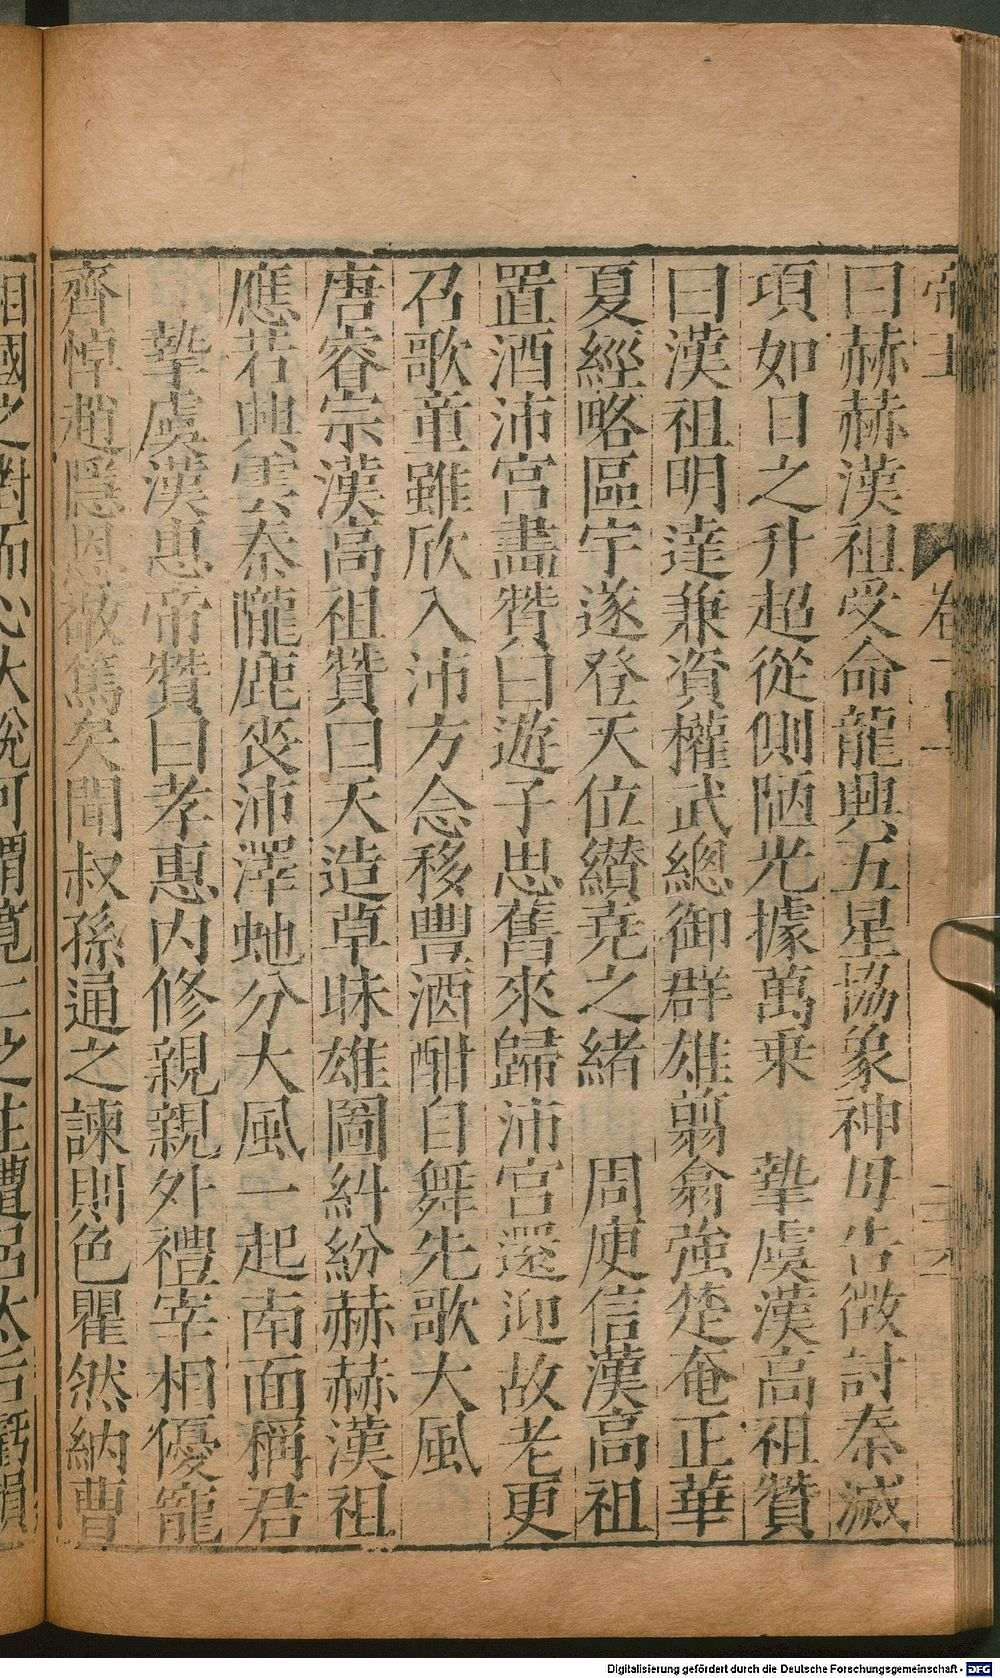 曰赫赫漢祖受命龍興五星協象神毋告徴討秦滅
項如日之升超從側陋光據萬乗　摯虞漢高祖贊
曰漢祖明達兼資權武總御群雄翦翕強楚奄正華
夏經略區宇遂登天位纉尭之緒　周庾信漢高祖
置酒沛宮畵贊曰遊子思舊來歸沛宮還迎故老更
召歌童雖欣入沛方念移豐酒酣自舞先歌大風
唐睿宗漢高祖贊曰天造草昧雄圖糾紛赫赫漢祖
應若興雲秦隴鹿丧沛澤虵分大風一起南面稱君
摯虞漢惠帝贊曰孝惠内修親親外禮宰相優寵
齊悼趙隱恩敬篤矣聞叔孫通之諫則色瞿然納曹
相國之對而心大說可謂寛仁之主遭呂太后虧損
Digitalisierung gefördert durch die Deutsche Forschungsgemeinschaft - DFG